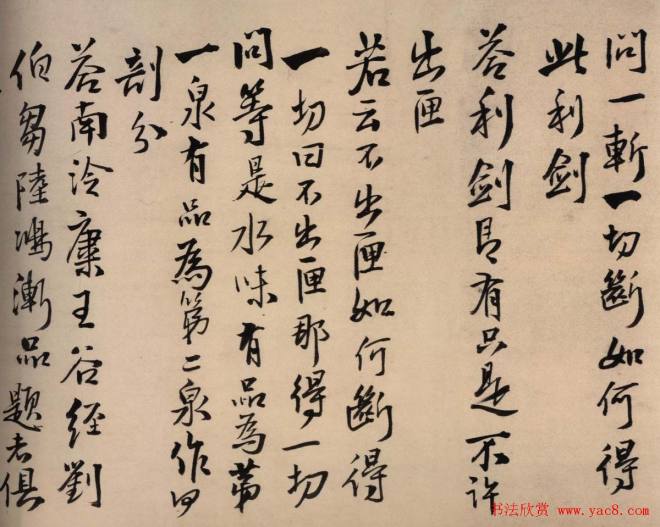 問一斬一切斷如何得
此利劍
答利劍即有只是不許
出匣
若云不出匣如何斷得
一切曰不出匣那得一切
問等是水味有品為第
一泉有品為第二泉作何
剖分
答南泠康王谷經劉
伯芻陸鴻漸品題者俱
书法欣赏 @ www.yac8.com